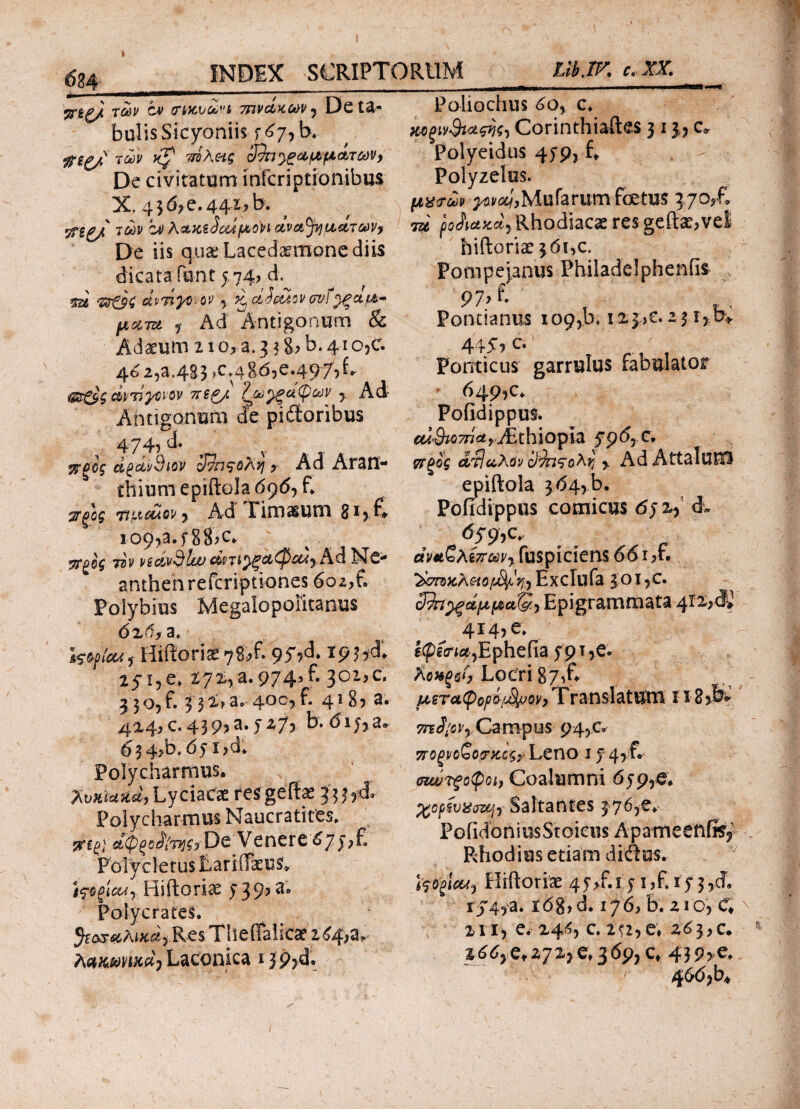 684 INDEX SCRIPTORUM Lib.IV. c. XX.
περὶ τῶν ἐν Σικυῶνι πινάκων, De ta-
bulis Sicyoniis 567, b.
περὶ τῶν κτ͂ πόλεις ἐπιγραμμάτων,
De civitatum inscriptionibus
X. 436, e. 442, b.
περὶ τῶν ἐν Λακεδαίμονι ἀναθημάτων,
De iis quæ Lacedæmone diis
dicata sunt 574, d.
τὰ πρὸς ἀντίγονον, ϗ ἀδαῖον συγγράμ-
ματα, Ad Antigonum &
Adæum 210, a. 338, b. 410, c.
462, a. 483, c. 486, e. 497, f.
πρὸς ἀντίγονον περὶ ζωγράφων, Ad
Antigonum de pictoribus
474, d.
πρὸς ἀράνθιον ἐπιστολὴ, Ad Aran-
thium epistola 696, f.
πρὸς τιμαῖον, Ad Timæum 81, f.
109, a. 588, c.
πρὸς τὸν νεάνθlω ἀντιγραφαὶ, Ad Ne-
anthen rescriptiones 602, f.
Polybius Megalopolitanus
626, a.
ἱστορίαι, Historiæ 78, f. 95, d. 193, d.
251, e. 272, a. 974, f. 302, c.
330, f. 332, a. 400, f. 418, a.
424, c. 439, a. 527, b. 615, a.
634, b. 651, d.
Polycharmus.
λυκιακὰ, Lyciacæ res gestæ 333, d.
Polycharmus Naucratites.
περὶ ἀφροδίτης, De Venere 675, f.
Polycletus Larissæus.
ἱστορίαι, Historiæ 539, a.
Polycrates.
θεσσαλικὰ, Res Thessalicæ 264, a.
λακωνικὰ, Laconica 139, d.
Poliochus 60, c.
κορινθιαστὴς, Corinthiastes 313, c.
Polyeidus 459, f.
Polyzelus.
μȣσῶν γοναὶ, Musarum fœtus 370, f.
τὰ ῥοδιακὰ, Rhodiacæ res gestæ, vel
historiæ 361, c.
Pompejanus Philadelphensis
97, f.
Pontianus 109, b. 123, c. 231, b.
445, c.
Ponticus garrulus fabulator
649, c.
Posidippus.
αἰθιοπία, Æthiopia 596, c.
πρὸς ἄτταλον ἐπιστολὴ, Ad Attalum
epistola 364, b.
Posidippus comicus 652, d.
659, c.
ἀναβλέπων, suspiciens 661, f.
ἀποκλειομένη, Exclusa 301, c.
ἐπιγράμματα, Epigrammata 412, d.
414, e.
ἐφεσία, Ephesia 591, e.
λοκροὶ, Locri 87, f.
μεταφορόμενον, Translatum 118, b.
πεδίον, Campus 94, c.
πορνοβοσκὸς, Leno 154, f.
σύντροφοι, Coalumni 659, e.
χορεύȣσαι, Saltantes 376, e.
Posidonius Stoicus Apameensis,
Rhodius etiam dictus.
ἱστορίαι, Historiæ 45, f. 151, f. 153, d.
154, a. 168, d. 176, b. 210, c.
211, e. 246, c. 252, e. 263, c.
266, e. 272, e. 369, c. 439, e.
466, b.